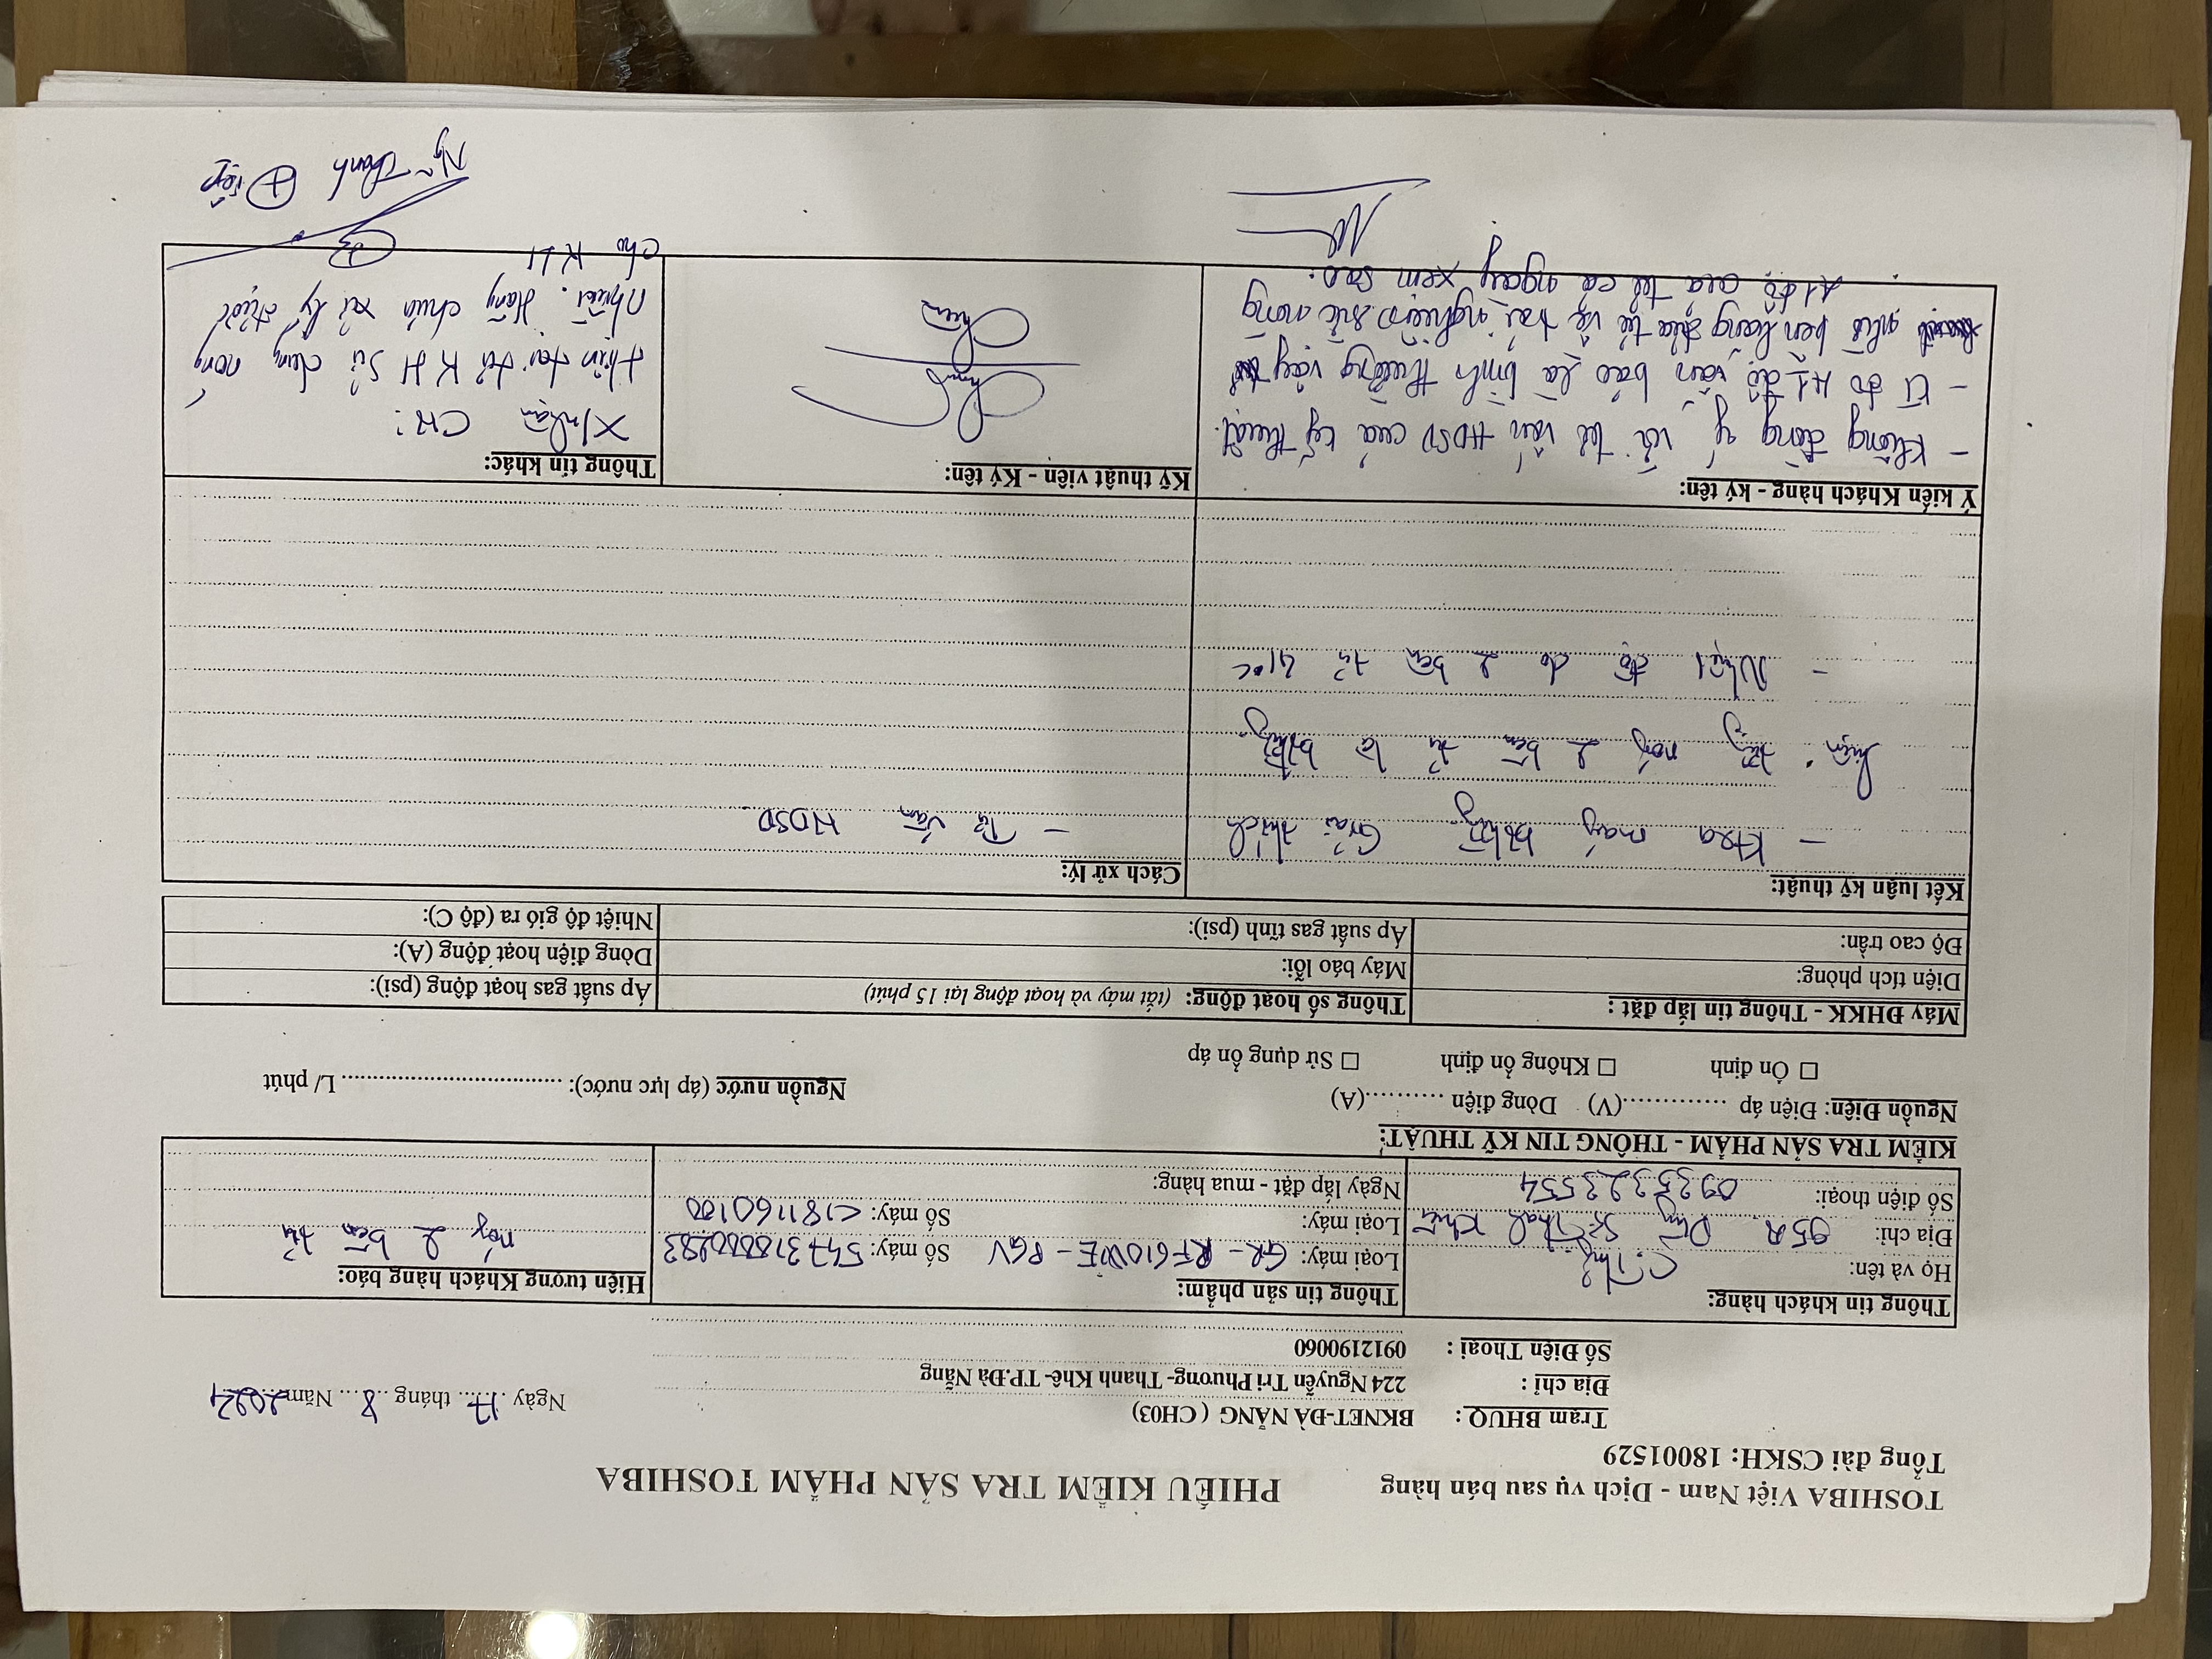 TOSHIBA Việt Nam - Dịch vụ sau bán hàng
PHIẾU KIỂM TRA SẢN PHẨM TOSHIBA
Tổng đài CSKH: 18001529
Trạm BHUQ: BKNET-ĐÀ NẴNG ( CH03)
Ngày 17 tháng 8 Năm 2021
Địa chỉ : 224 Nguyễn Tri Phương- Thanh Khê- TP.Đà Nẵng
Số Điện Thoại : 0912190060
Thông tin khách hàng:
Họ và tên: C. Thủy
Địa chỉ: 95A
Số điện thoại: 0935323554
Thông tin sản phẩm:
Loại máy: GR-RF610WE-PGV Số máy:
Loại máy: Số máy:
Ngày lắp đặt - mua hàng:
Hiện tượng Khách hàng báo:
nóng 2 bên tủ
KIỂM TRA SẢN PHẨM - THÔNG TIN KỸ THUẬT:
Nguồn Điện: Điện áp ..............(V) Dòng điện ...........(A)
Nguồn nước (áp lực nước): .................................. L/ phút
□ Ổn định □ Không ổn định □ Sử dụng ổn áp
Máy ĐHKK - Thông tin lắp đặt :
Diện tích phòng:
Độ cao trần:
Thông số hoạt động: (tắt máy và hoạt động lại 15 phút)
Máy báo lỗi:
Áp suất gas tĩnh (psi):
Áp suất gas hoạt động (psi):
Dòng điện hoạt động (A):
Nhiệt độ gió ra (độ C):
Kết luận kỹ thuật:
- Ktra máy bthg Giải thích
hiện tg nóng 2 bên tủ là bthg
- Nhiệt độ đo 2 bên tủ 41°C
Cách xử lý:
- Tư vấn HDSD
Ý kiến Khách hàng - ký tên:
- Không đồng ý với tư vấn HDSD của kỹ thuật.
- Vì đo 41 độ vẫn báo là bình thường vậy
nhờ bên hãng đưa tủ về trải nghiệm sức nóng
41 độ của tủ cả ngày xem sao.
Kỹ thuật viên - Ký tên:
Thông tin khác:
X/nhận CH:
Hiện tại tủ KH sử dụng nóng
nhiều. Hãng chưa xử lý được
cho KH
Ng~ Thanh Điệp